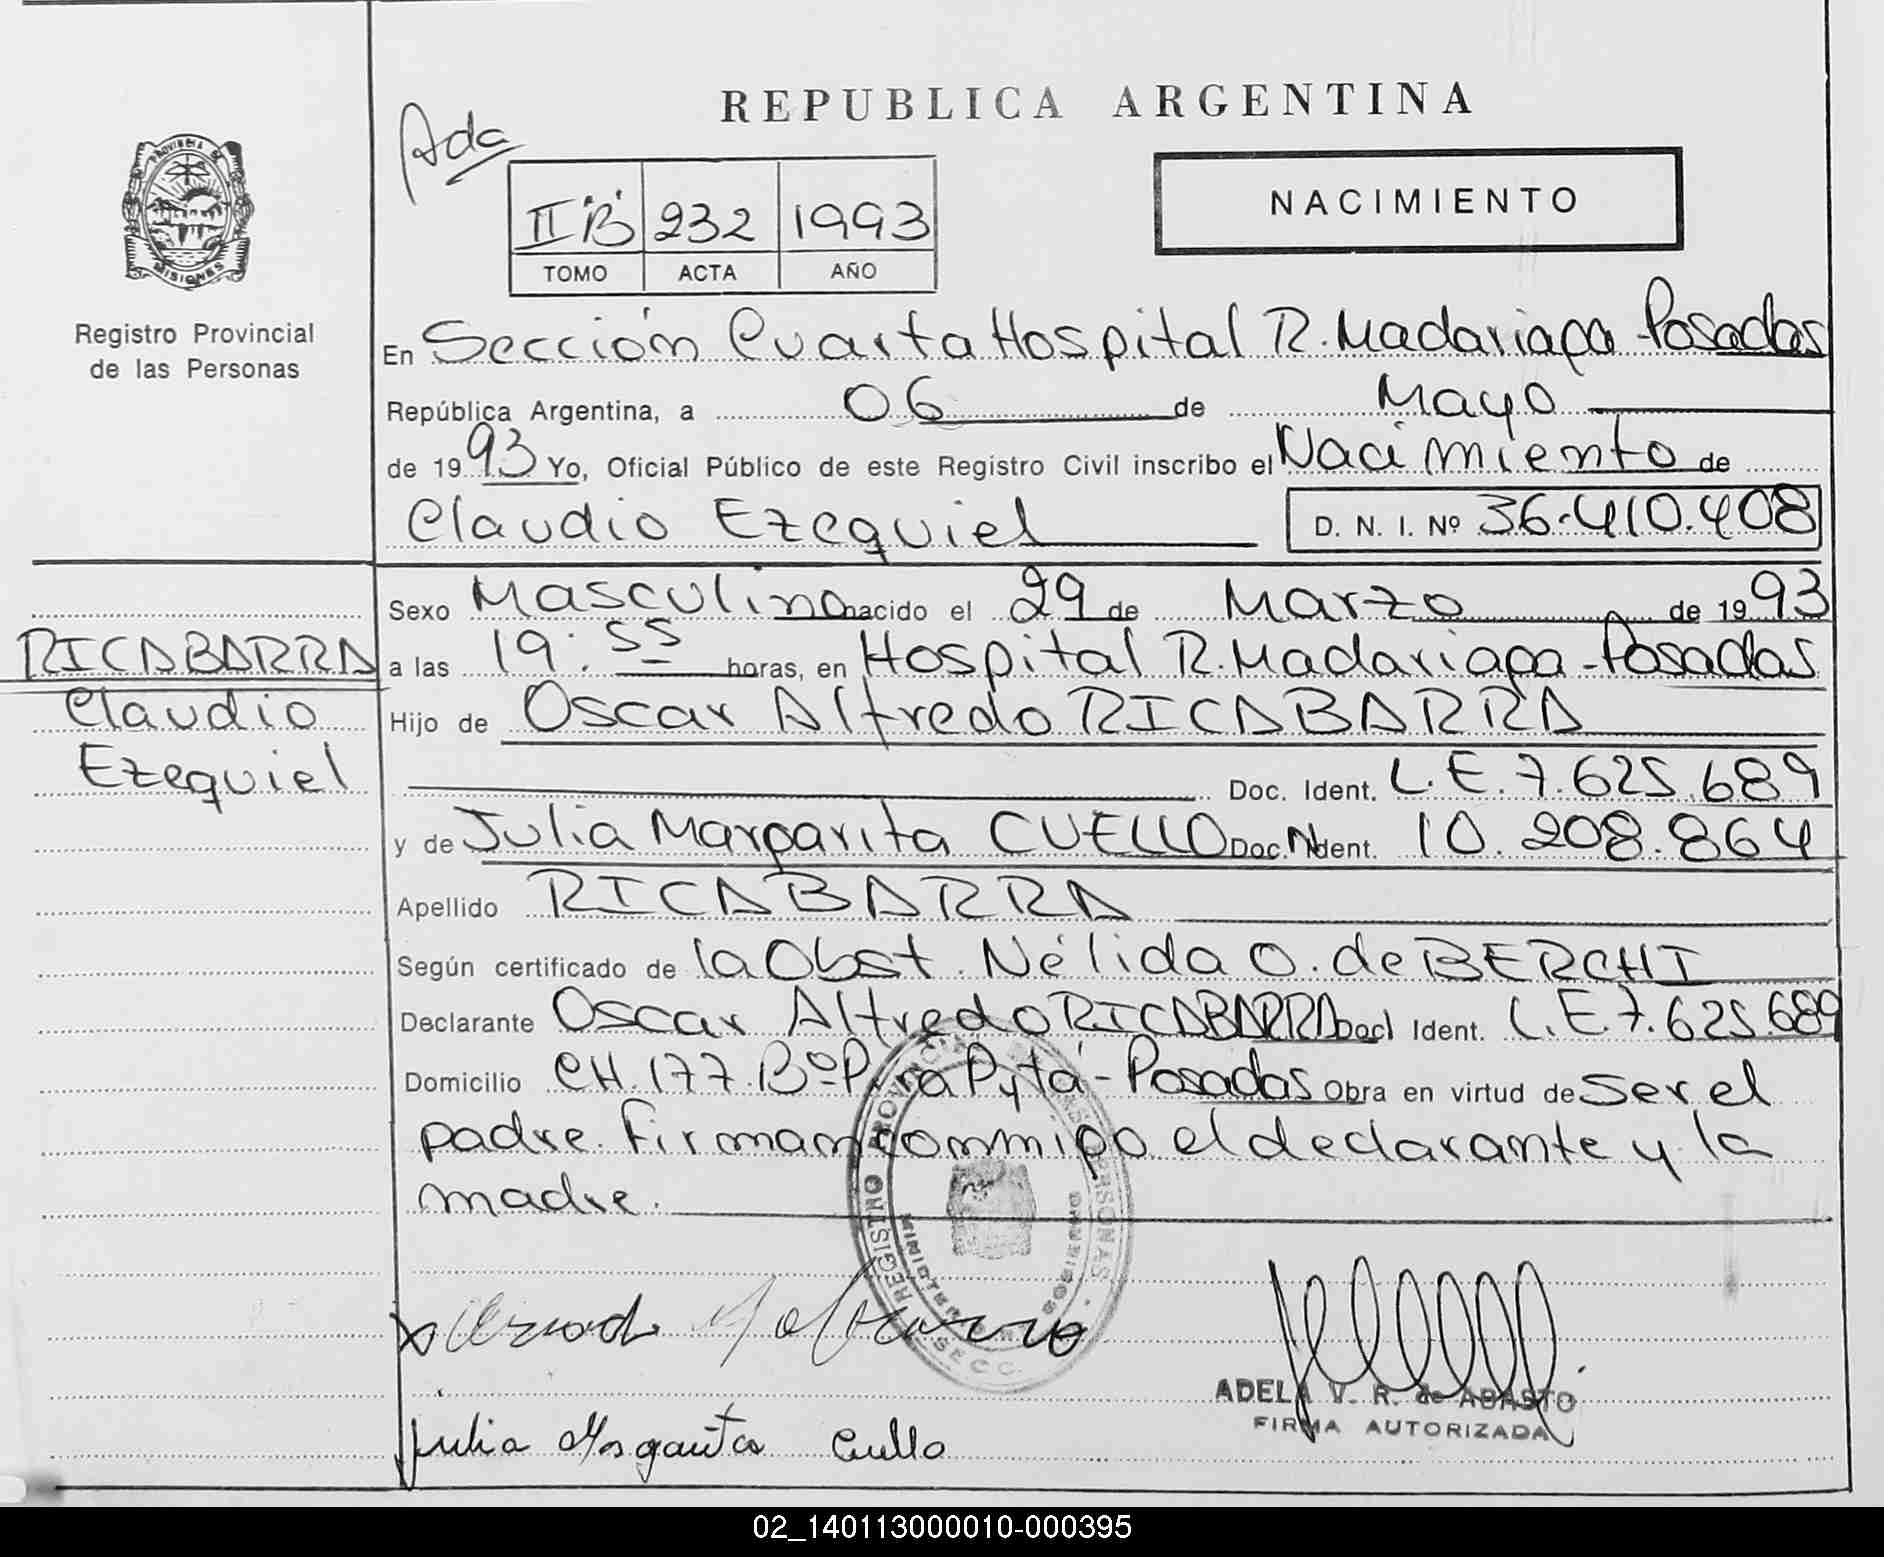 REPUBLICA ARGENTINA
Ada
II "B" 232 1993
TOMO ACTA AÑO
NACIMIENTO
PROVINCIA DE
MISIONES
Registro Provincial
de las Personas
En Sección Cuarta Hospital R. Madariaga - Posadas
República Argentina, a 06 de Mayo
de 1993 Yo, Oficial Público de este Registro Civil inscribo el Nacimiento de
Claudio Ezequiel D. N. I. Nº 36.410.408
Sexo Masculino nacido el 29 de Marzo de 1993
RICABARRA
Claudio
Ezequiel
a las 19:55 horas, en Hospital R. Madariaga - Posadas
Hijo de Oscar Alfredo RICABARRA
Doc. Ident. L.E. 7.625.689
y de Julia Margarita CUELLO Doc. Ident. 10.208.864
Apellido RICABARRA
Según certificado de la Obst. Nélida O. de BERCHI
Declarante Oscar Alfredo RICABARRA Doc. Ident. L.E. 7.625.689
Domicilio CH. 177. Bº Pyra Pytá - Posadas Obra en virtud de ser el
padre. Firman conmigo el declarante y la
madre.
Julia Margarita Cuello
ADELA V. R. de ABASTO
FIRMA AUTORIZADA
02_140113000010-000395